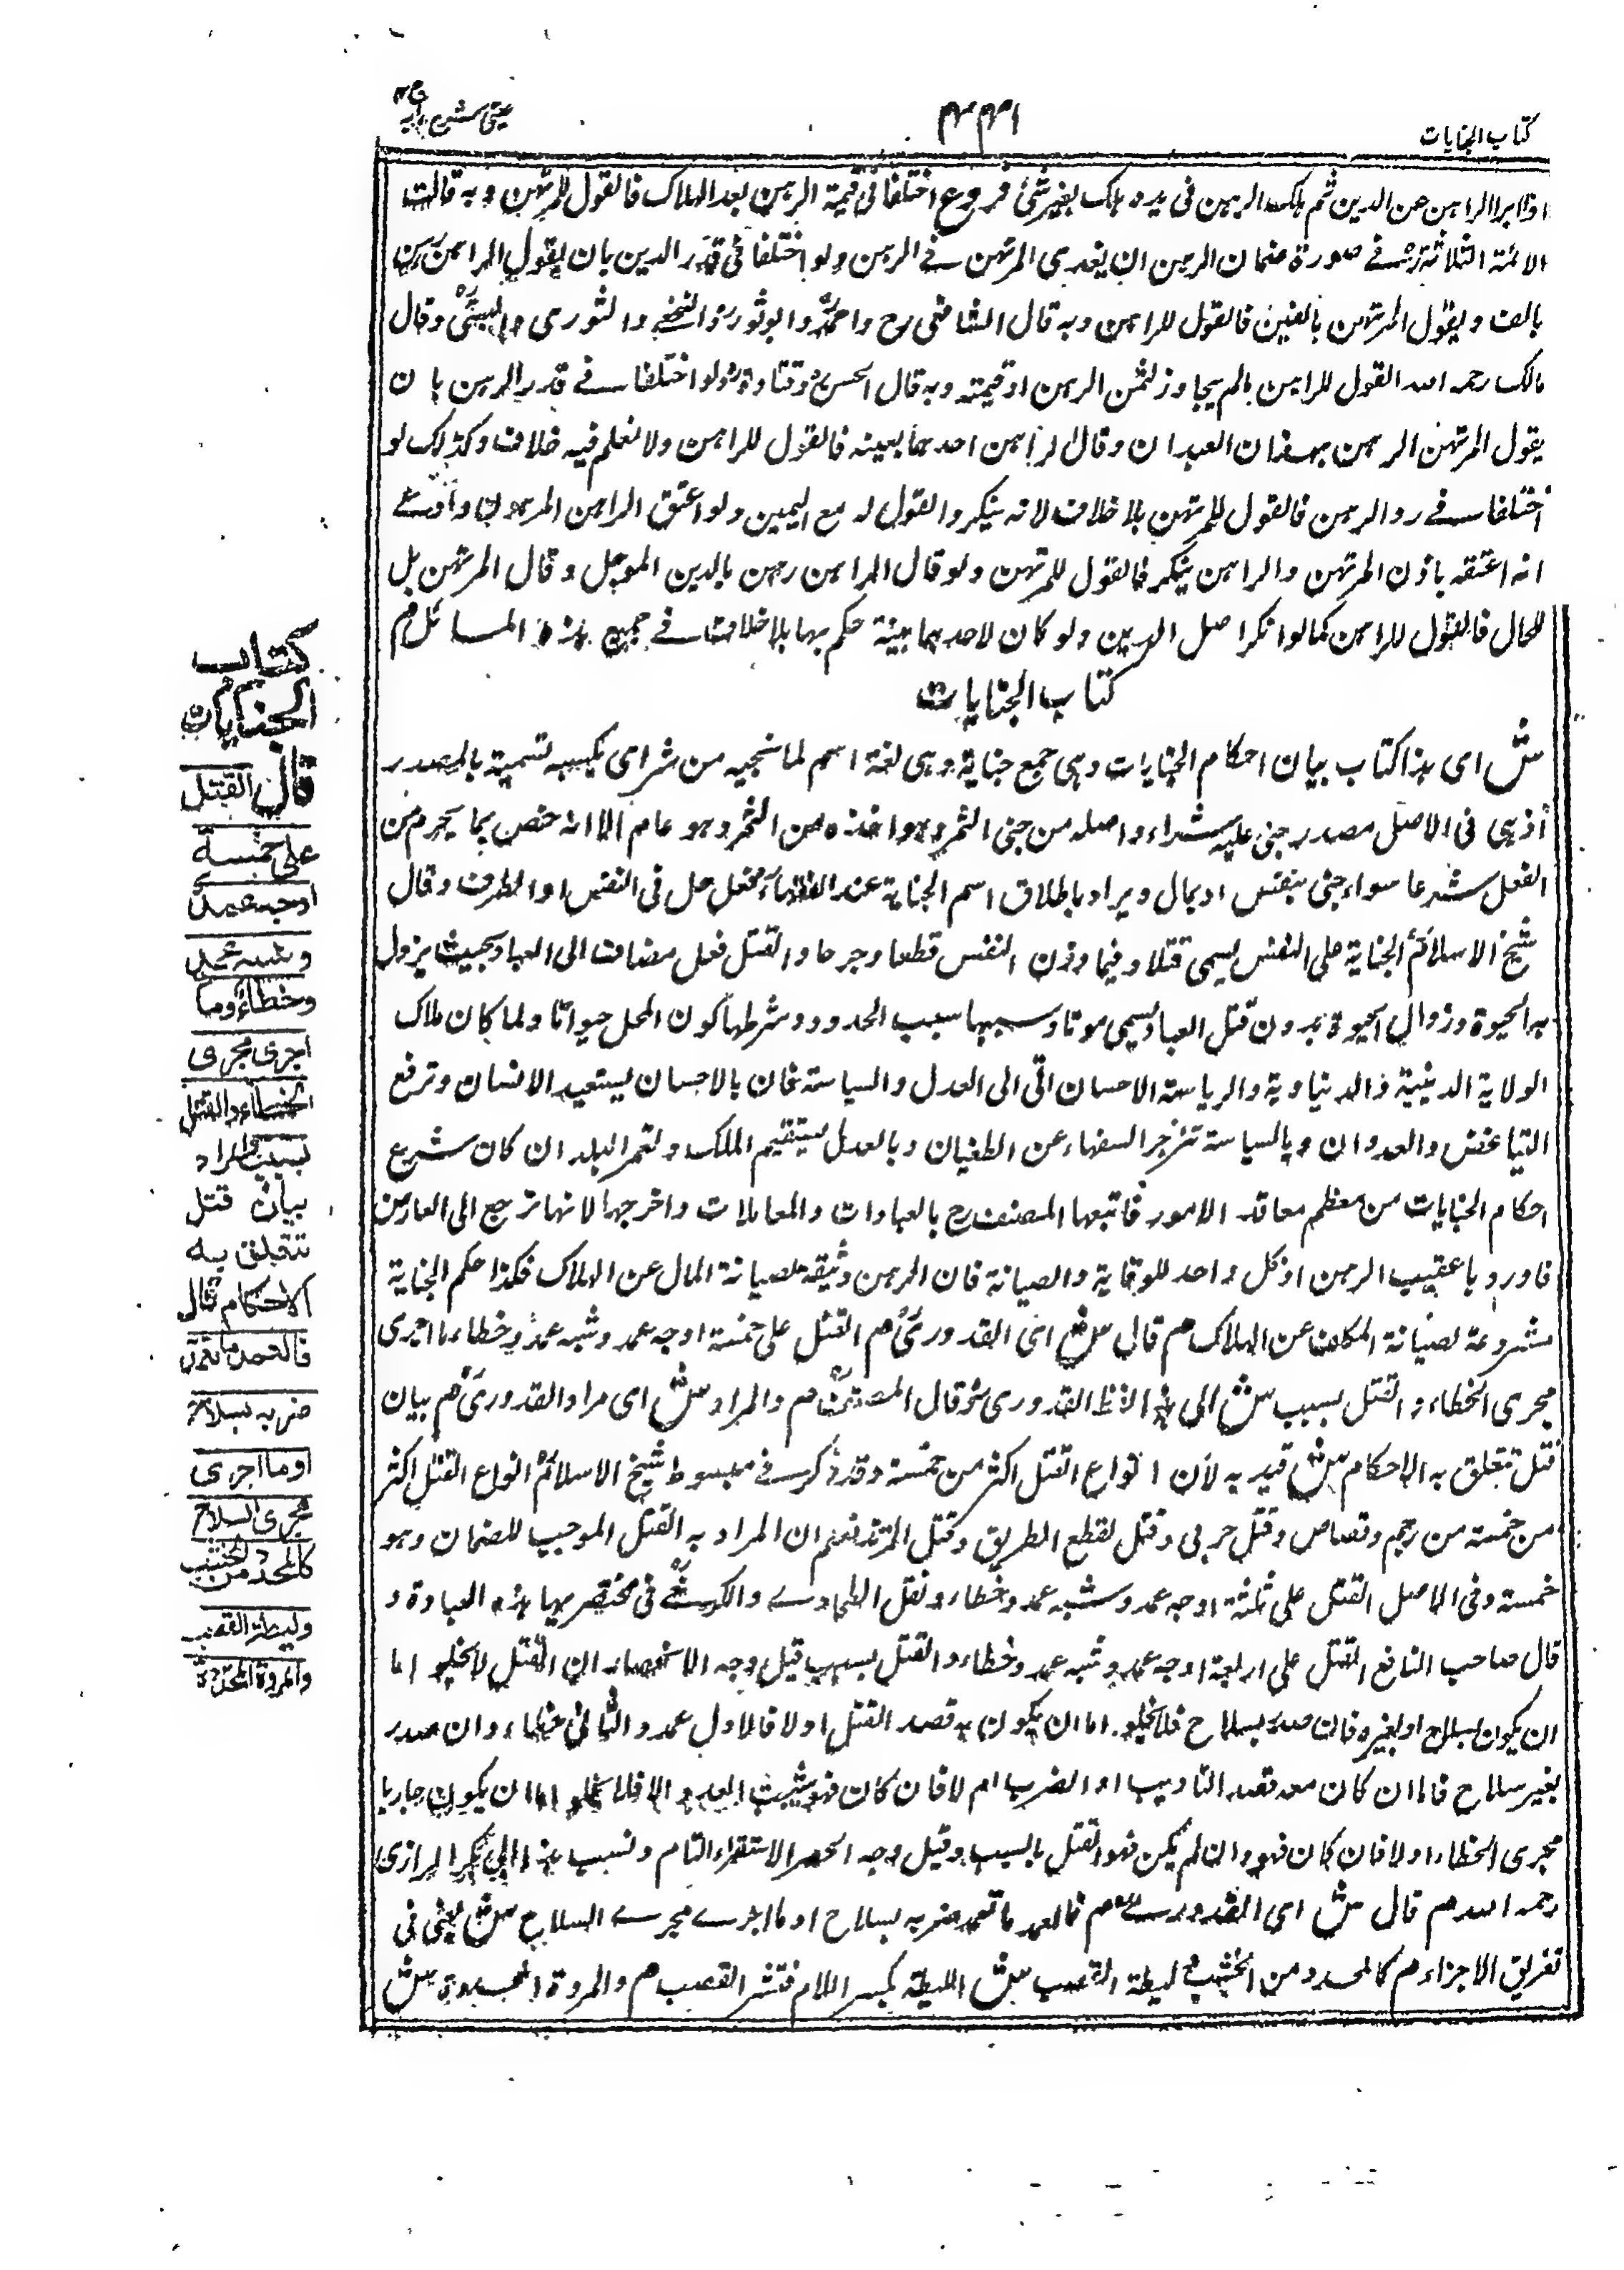 كتاب الجنايات
۴۴۱
عینی شرح ہدایہ
اذا ابرا الراہن عن الدین ثم ہلک الرہن فی یدہ یہلک بغیر شئ فروع اختلفا فی قیمۃ الرہن بعد الہلاک فالقول للمرتہن وبہ قالت
الائمۃ الثلاثۃ فے صورۃ ضمان الرہن ان یتعدی المرتہن فے الرہن ولو اختلفا فی قدر الدین بان یقول الراہن رہن
بالف ویقول المرتہن بالفین فالقول للراہن وبہ قال الشافعی رح واحمدؒ وابو ثورؒ والنخعے والثوری والبتیؒ وقال
مالک رحمہ اللہ القول للراہن مالم یجاوز ثمن الرہن او قیمتہ وبہ قال الحسنؒ وقتادۃؒ ولو اختلفا فے قدر الرہن بان
یقول المرتہن الرہن ہذان العبدان وقال الراہن احدہما بعینہ فالقول للراہن ولا نعلم فیہ خلاف وکذلک لو
اختلفا فے رد الرہن فالقول للمرتہن بلا خلاف لانہ ینکر والقول لہ مع الیمین ولو اعتق الراہن المرہون وادعے
انہ اعتقہ باذن المرتہن والراہن ینکر فالقول للمرتہن ولو قال الراہن رہن بالدین الموجل وقال المرتہن بل
للحال فالقول للراہن کما لو انکر اصل الدین ولو کان لاحدہما بینۃ حکم بہا بلا خلاف فے جمیع ہذہ المسائل م
کتاب الجنایات
ش ای ہذا کتاب بیان احکام الجنایات وہی جمع جنایۃ وہی لغۃ اسم لما تجنیہ من شر ای تکسبہ تسمیۃ بالمصدر
اذ ہی فی الاصل مصدر جنی علیہ شرا واصلہ من جنی الثمر وہو اخذہ من الشجر وہو عام الا انہ خص بما یحرم من
الفعل شرعا سواء جنی بنفس او بمال ویراد باطلاق اسم الجنایۃ عند الفقہاء فعل حل فی النفس او الطرف وقال
شیخ الاسلامؒ الجنایۃ علی النفس یسمی قتلا وفیما دون النفس قطعا وجرحا والقتل فعل مضاف الی العباد بحیث یزول
بہ الحیوۃ وزوال الحیوۃ بدون قتل العباد یسمی موتا وسببہا سبب الحدود وشرطہا کون المحل حیوانا ولما کان ملاک
الولایۃ الدینیۃ والدنیاویۃ والریاسۃ الاحسان اتی الی العدل والسیاسۃ فان بالاحسان یستعبد الانسان وترفع
التباغض والعدوان وبالسیاسۃ تنزجر السفہاء عن الطغیان وبالعدل یستقیم الملک وتعمر البلدان کان شرع
احکام الجنایات من معظم معاقد الامور فاتبعہا المصنف رح بالعبادات والمعاملات واخرجہا لانہا ترجع الی العارض
فاوردہا عقیب الرہن اذ کل واحد للوقایۃ والصیانۃ فان الرہن وثیقۃ لصیانۃ المال عن الہلاک فکذا حکم الجنایۃ
مشروعۃ لصیانۃ المکلف عن الہلاک م قال ش ای القدوریؒ م القتل علی خمسۃ اوجہ عمد وشبہ عمد وخطاء ما اجری
مجری الخطاء والقتل بسبب ش الی ہذا لفظ القدوریؒ وقال المصنفؒ م والمراد ش ای مراد القدوریؒ م بیان
قتل تتعلق بہ الاحکام ش قید بہ لان انواع القتل اکثر من خمسۃ وقد ذکر فے مبسوط شیخ الاسلامؒ انواع القتل اکثر
من خمسۃ من رجم وقصاص وقتل حربی وقتل لقطع الطریق وقتل المرتد نعلم ان المراد بہ القتل الموجب للضمان وہو
خمسۃ وفی الاصل القتل علی ثلثۃ اوجہ عمد وشبہ عمد وخطاء ونقل الطحاوے والکرخےؒ فی مختصریہما ہذہ العبادۃ و
قال صاحب النافع القتل علی اربعۃ اوجہ عمد وشبہ عمد وخطاء والقتل بسبب قیل وجہ الانحصار ان القتل لا یخلو اما
ان یکون بسلاح او بغیرہ فان صدر بسلاح فلا یخلو اما ان یکون بہ قصد القتل اولا فالاول عمد والثانی خطاء وان صدر
بغیر سلاح فاما ان کان معہ قصد التادیب او الضرب ام لا فان کان فہو شبہ العمد والا فلا یخلو اما ان یکون جاریا
مجری الخطاء اولا فان کان فہو وان لم یکن فہو القتل بالسبب وقیل وجہ الحصر الاستقراء التام ونسب ہذا الی بکر الرازی
رحمہ اللہ م قال ش ای القدورےؒ م فالعمد ما تعمد ضربہ بسلاح او ما اجرے مجرے السلاح ش یعنی فی
تفریق الاجزاء م کالمحدد من الخشب ولیطۃ القصب ش اللیطۃ بکسر اللام قشر القصب م والمروۃ المحددۃ ش
كتاب
الجنايات
قال القتل
على خمسة
اوجه عمد
وشبه عمد
وخطاء وما
اجرى مجرى
الخطاء والقتل
بسبب والمراد
بيان قتل
تتعلق به
الاحكام قال
فالعمد ما تعمد
ضربه بسلاح
او ما اجرى
مجرى السلاح
كالمحدد من الخشب
وليطة القصب
والمروة المحددة